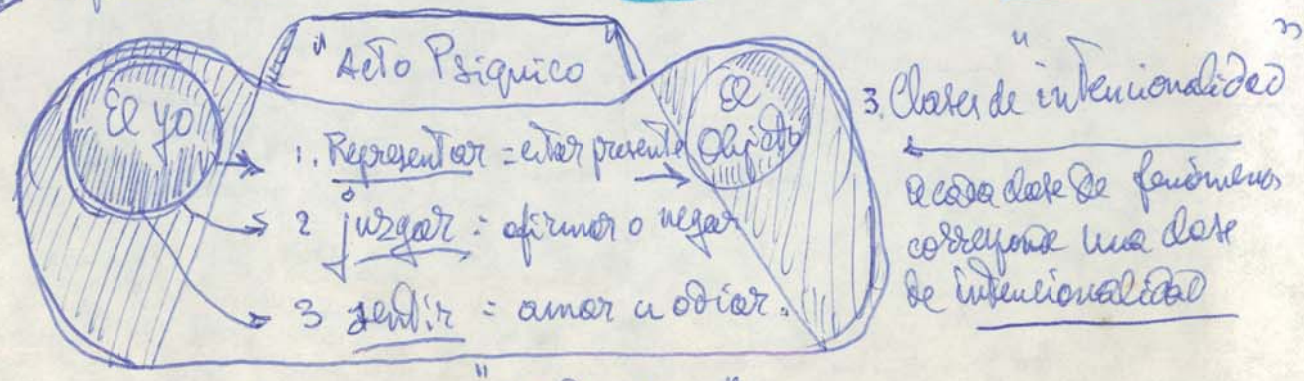 "Acto Psíquico"
El yo
El
Objeto
1. Representar = estar presente
2 juzgar = afirmar o negar
3 sentir = amar u odiar.
3. Clases de "intencionalidad"
a cada clase de fenómenos
corresponde una clase
de intencionalidad